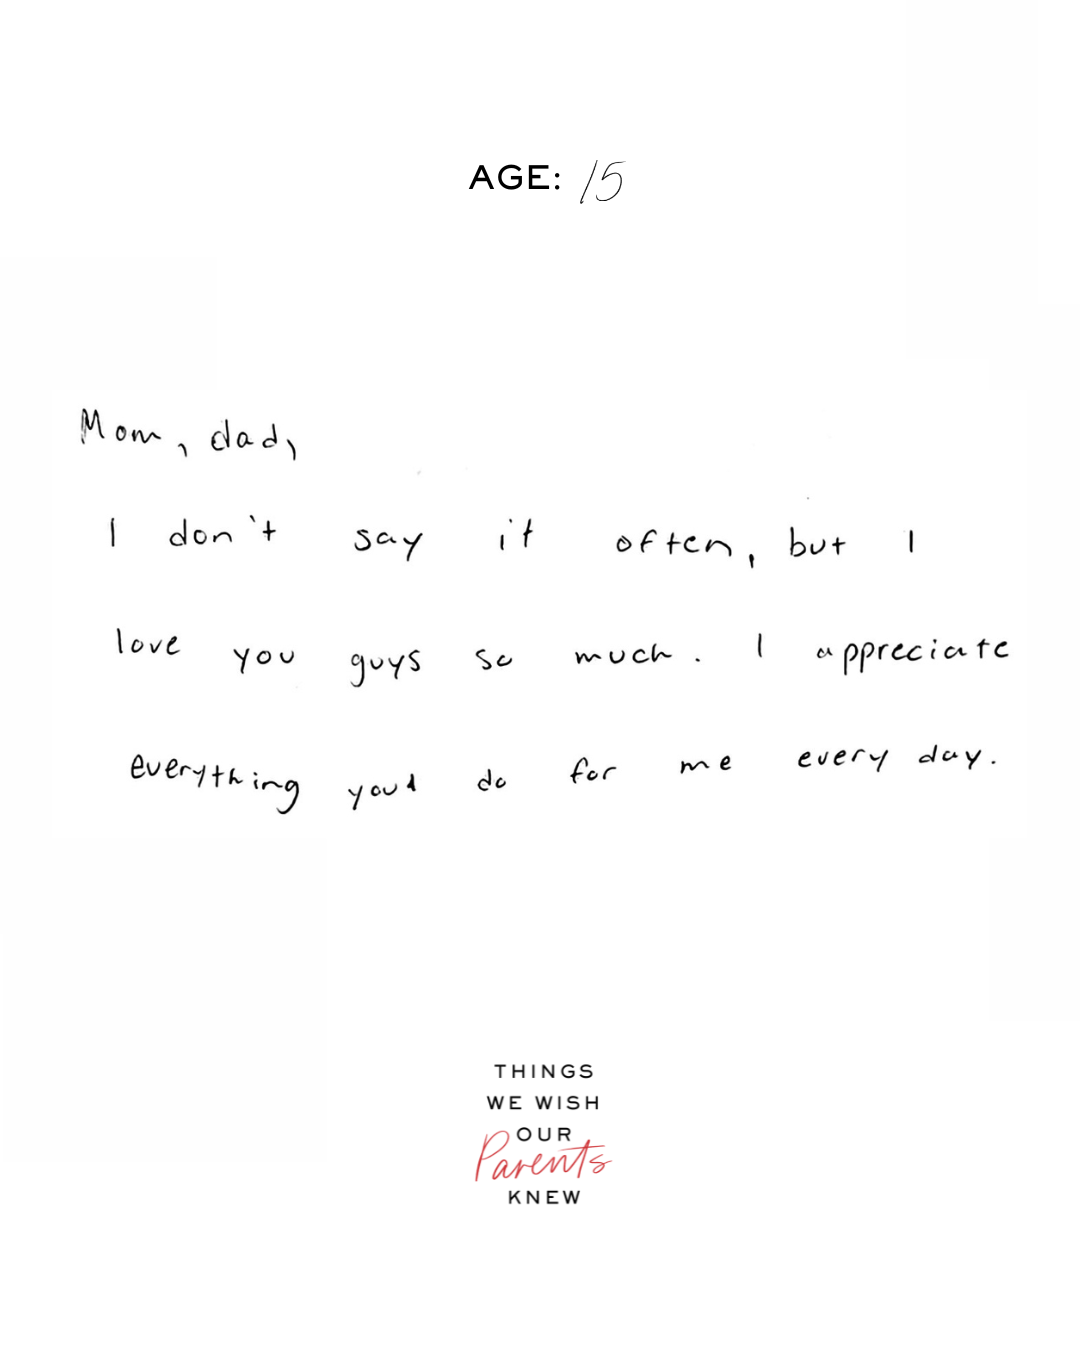 AGE: 15
Mom, dad,
I don't say it often, but I
love you guys so much. I appreciate
everything you do for me every day.
THINGS
WE WISH
OUR
Parents
KNEW